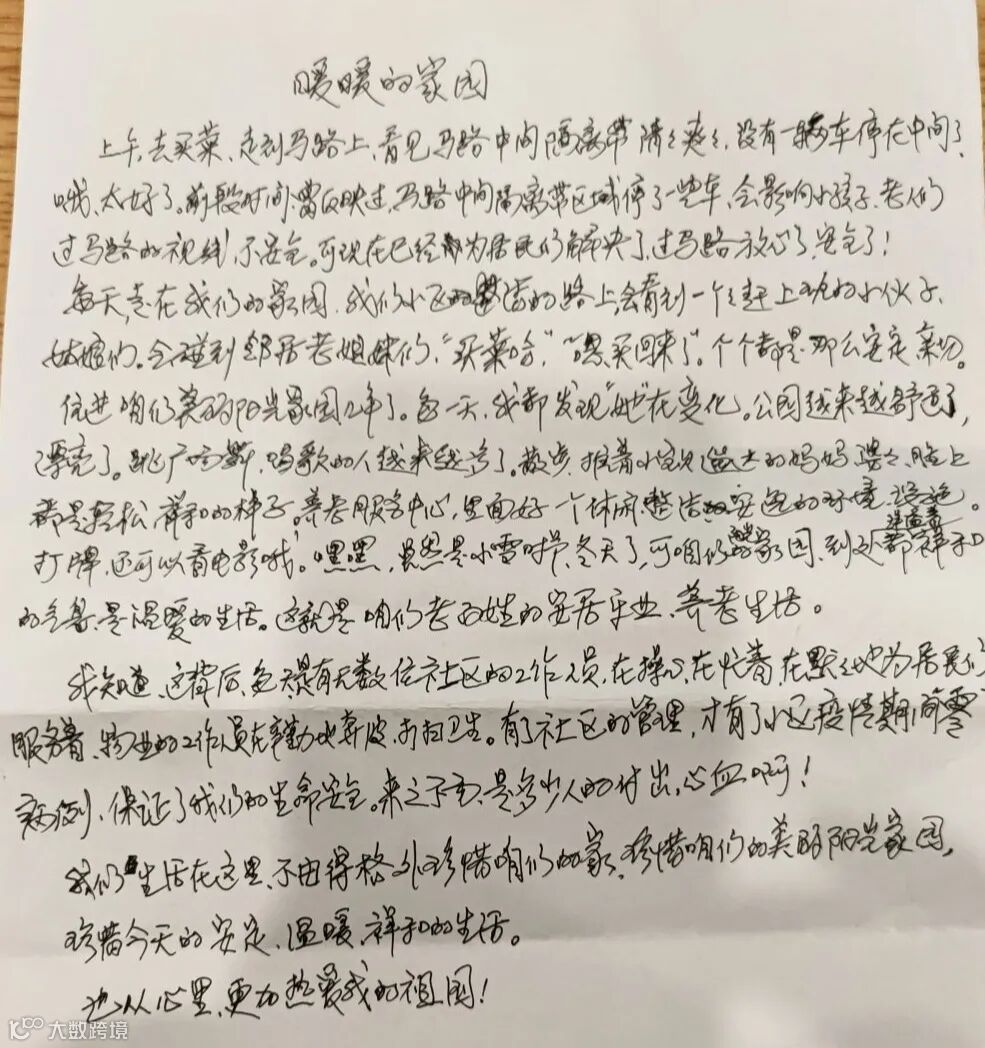 暖暖的家园
上午,去买菜、走到马路上,看见马路中间隔离带清清爽爽,没有一辆车停在中间了,
哦、太好了。前段时间,曾反映过,马路中间隔离带区域停了一些车、会影响小孩子、老人们
过马路的视线,不安全。可现在已经为居民们解决了,过马路放心了,安全了!
每天,走在我们的家园,我们小区的整洁的路上,会看到一个个赶上班的小伙子、
姑娘们。会碰到邻居老姐妹们,“买菜哈”,“嗯,买回来了”。个个都是那么安定亲切。
住进咱们美丽阳光家园几年了。每一天,我都发现“她”在变化。公园越来越舒适了,
漂亮了。跳广场舞,唱歌的人越来越多了。散步,推着小宝贝遛达的妈妈婆婆,脸上
都是轻松,祥和的样子。养老服务中心,里面好一个休闲,整洁安逸的环境、设施。
打牌,还可以看电影哦。嘿嘿,虽然是小雪时节,冬天了,可咱们家园,到处都洋溢着祥和
的气息,是温暖的生活。这就是咱们老百姓的安居乐业、养老生活。
我知道,这背后,是有无数位社区的工作人员,在操心在忙着,在默默地为居民们
服务着、物业的工作人员在辛勤地奔波,打扫卫生。有了社区的管理,才有了小区疫情期间零
病例,保证了我们的生命安全。来之不易,是多少人的付出,心血啊!
我们生活在这里,不由得格外珍惜咱们的家,珍惜咱们的美丽阳光家园,
珍惜今天的安定、温暖、祥和的生活。
也从心里,更加热爱我的祖国!
大数跨境